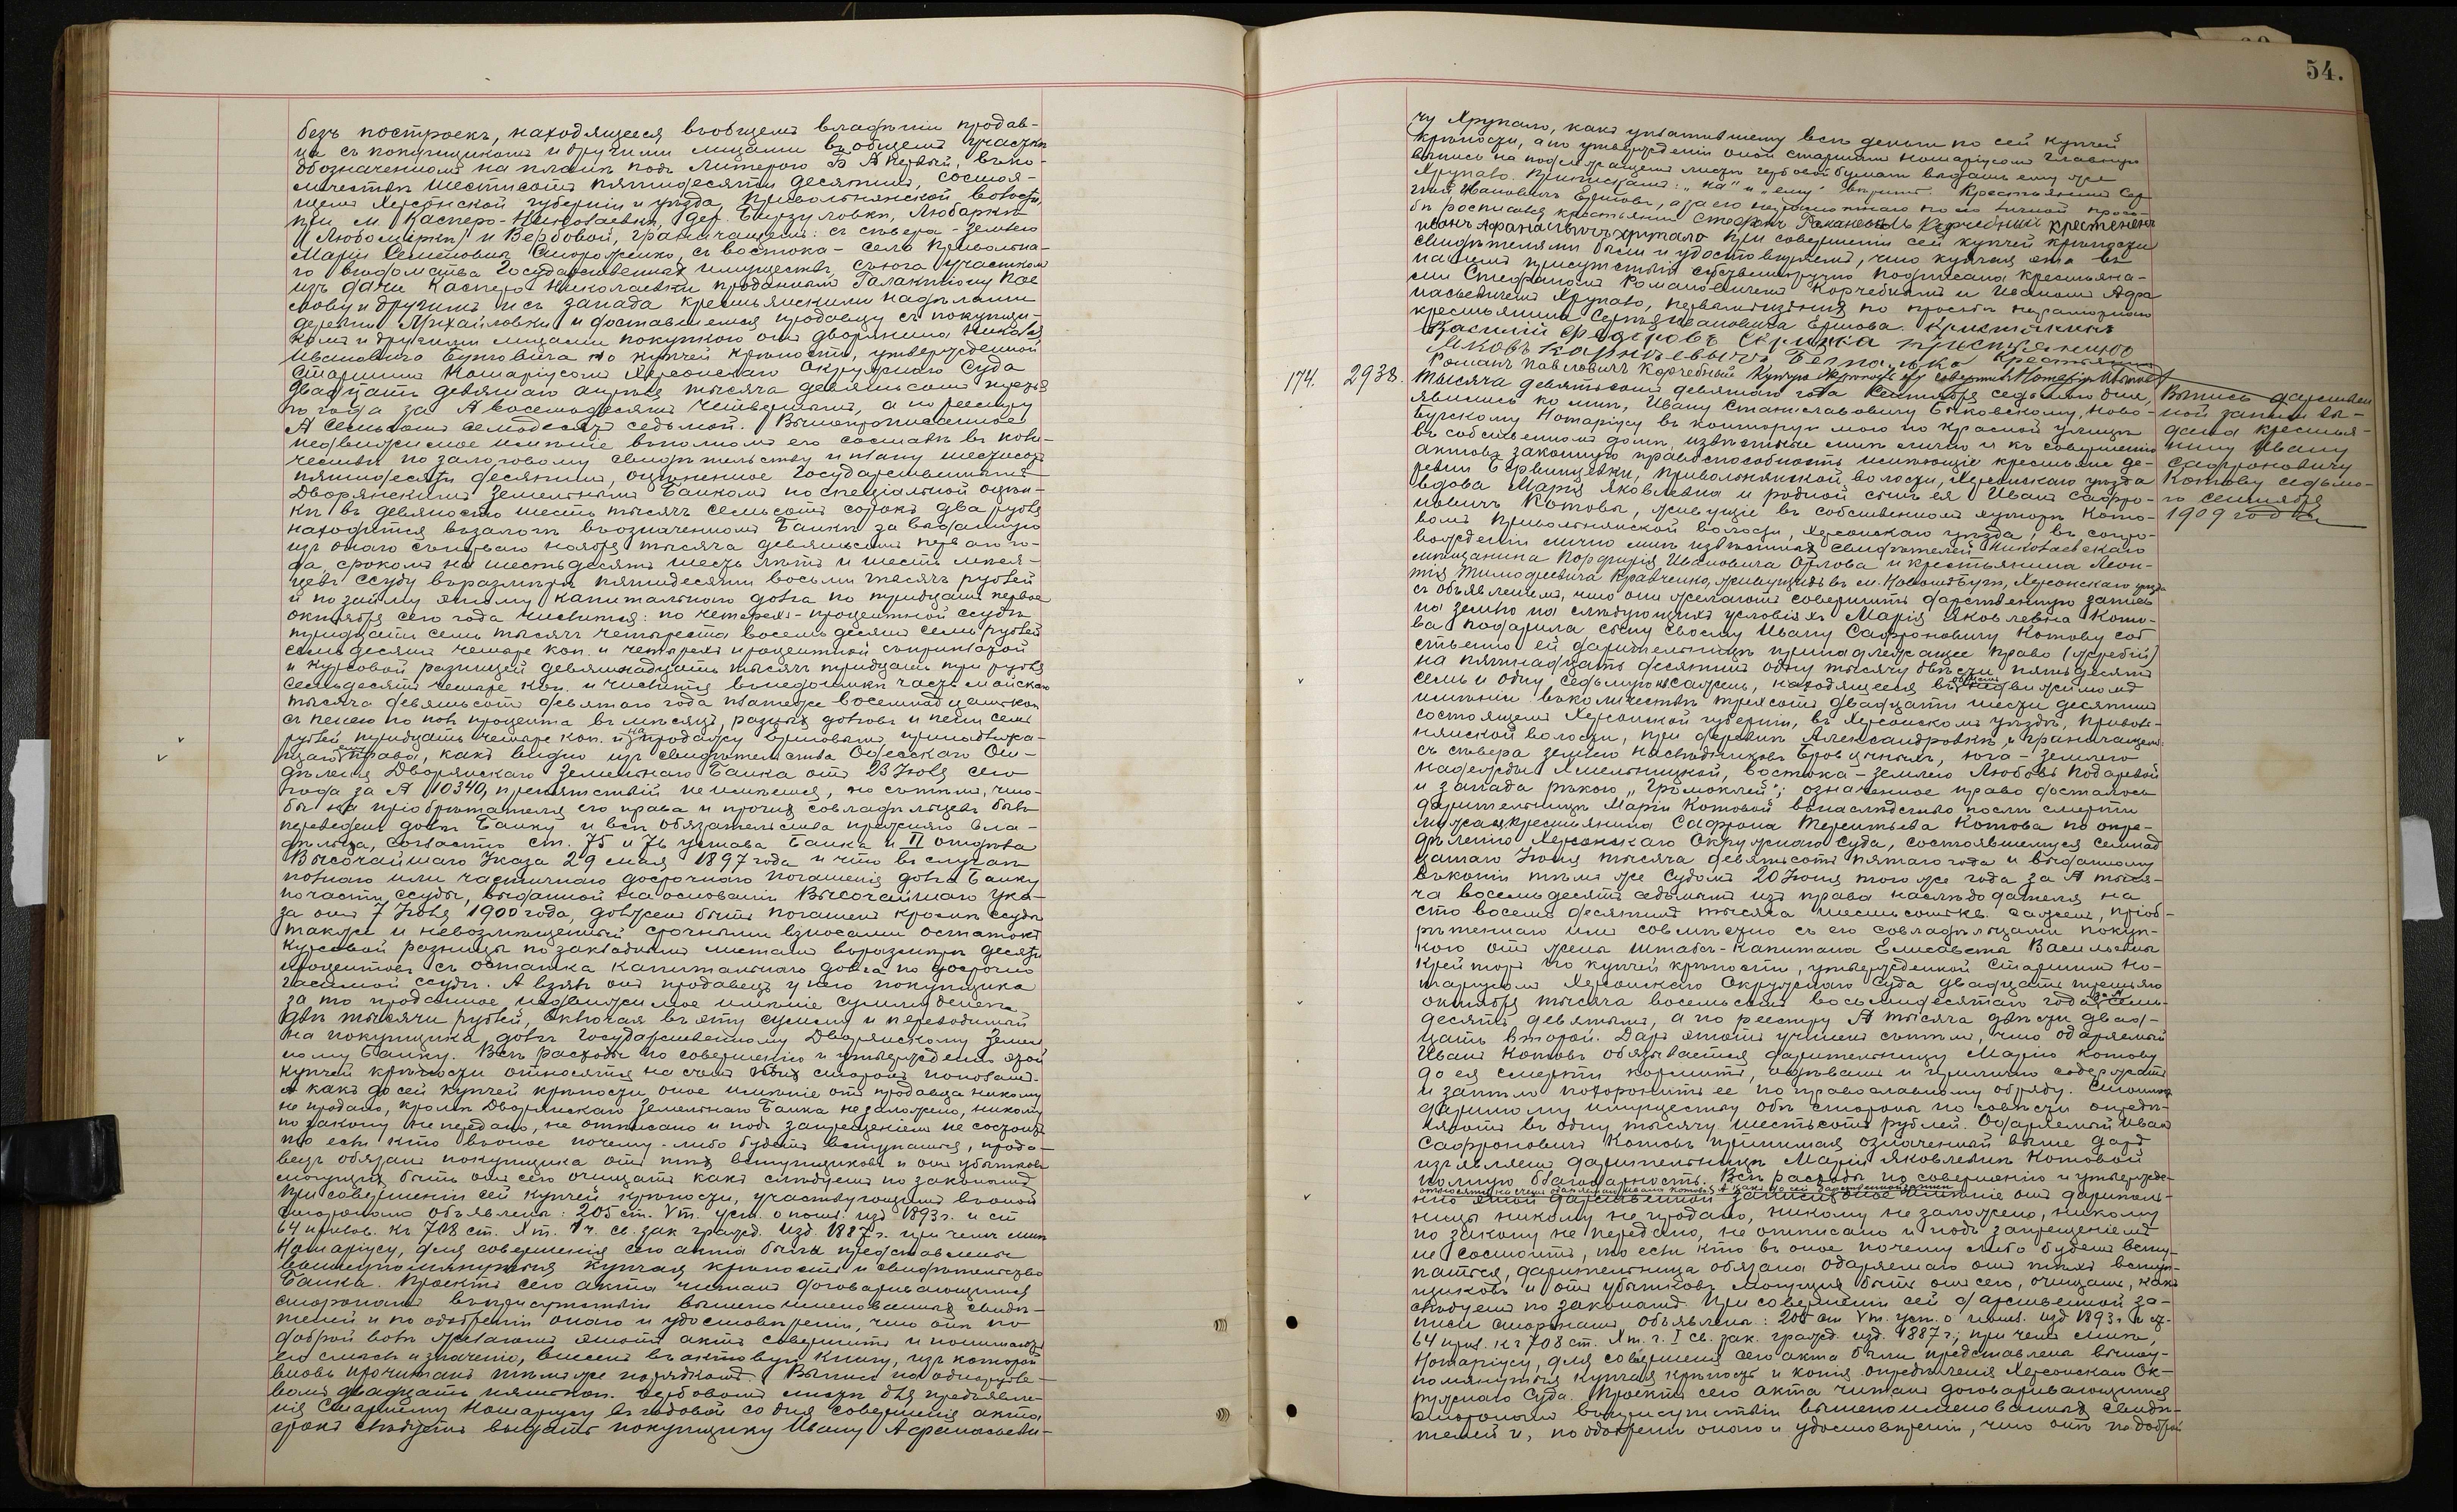 безъ построекъ, находящееся въ общемъ владѣніи продав-
ца съ покупщикомъ и другими лицами въ общемъ участкѣ
обозначенномъ на планѣ подъ литерою Б А первый, въ ко-
личествѣ шестисотъ пятидесяти десятинъ, состоя-
щемъ Херсонской губерніи и уѣзда, Привольнянской волости,
при м. Касперо-Николаевкѣ, дер. Бурзуловки, Любарки
/Любомірки/ и Вербовой, граничащемъ: съ сѣвера - землею
Маріи Семеновны Стороженко, съ востока - села Привольна-
го вѣдомства Государственныхъ имуществъ, съ юга участкомъ
изъ дачи Касперо-Николаевки проданнымъ Галактіону
слову и другимъ и съ запада крестьянскими надѣлами
деревни Михайловки и доставшемся продавцу съ покупщи-
комъ и другими лицами покупкою отъ дворянина Николая
Ивановича Бутовича по купчей крѣпости, утвержденной
Старшимъ Нотаріусомъ Херсонскаго Окружнаго Суда
двадцать девятаго апрѣля тысяча девятьсотъ
го года за № восемьдесятъ четвертымъ, а по реестру
№ семьсотъ семьдесятъ седьмой. Вышеописанное
недвижимое имѣніе въ полномъ его составѣ въ коли-
чествѣ по залоговому свидѣтельству и плану шестисотъ
пятидесяти десятинъ, оцѣненное Государственнымъ
Дворянскимъ Земельнымъ Банкомъ по спеціальной оцѣн-
кѣ въ девяносто шесть тысячъ семьсотъ сорокъ два рубля
находится въ залогѣ въ означенномъ Банкѣ за выданную
изъ онаго съ перваго ноября тысяча девятьсотъ перваго го-
да, срокомъ на шестьдесятъ шесть лѣтъ и шесть мѣся-
цевъ ссуду въ размѣрѣ пятидесяти восьми тысячъ рублей
и по займу этому капитальнаго долга по тридцать первое
октября сего года числится: по четырехъ-процентной ссудѣ
тридцать семь тысячъ четыреста восемьдесятъ семь рублей
семьдесятъ четыре коп. и четырехъ процентной съ приплатой
и курсовой разницей девятнадцать тысячъ тридцать три рубля
семьдесятъ четыре коп. и числится въ недоимкѣ часть майскаго
тысяча девятьсотъ девятаго года платежа восемнадцать коп.
съ пенею по полъ процента въ мѣсяцъ, разныхъ долговъ и пени семь
рублей тридцать четыре коп. и на продажу Ершовымъ принадлежа-
щаго ему права, какъ видно изъ свидѣтельства Одесскаго От-
дѣленія Дворянскаго Земельнаго Банка отъ 23 Іюля сего
года за № 10340, препятствій не имѣется, но съ тѣмъ, что-
бы на пріобрѣтателя его права и прочихъ совладѣльцевъ былъ
переведенъ долгъ Банку и всѣ обязательства прежняго вла-
дѣльца, согласно ст. 75 и 76 устава Банка и II отдѣла
Высочайшаго Указа 29 мая 1897 года и что въ случаѣ
полнаго или частичнаго досрочнаго погашенія долга Банку
по части ссуды, выданной на основаніи Высочайшаго Ука-
за отъ 7 Іюля 1900 года, долженъ быть погашенъ кромѣ ссуды
также и невозмѣщенный срочными взносами остатокъ
курсовой разницы по закладнымъ листамъ въ размѣрѣ десяти
процентовъ съ остатка капитальнаго долга по досрочно
гасимой ссудѣ. А взялъ онъ продавецъ у него покупщика
за то проданное недвижимое имѣніе сумму денегъ
двѣ тысячи рублей, включая въ эту сумму и переводимый
на покупщика долгъ Государственному Дворянскому Земель-
ному Банку. Всѣ расходы по совершенію и утвержденію этой
купчей крѣпости относятся на счетъ обѣихъ сторонъ пополамъ.
А какъ до сей купчей крѣпости оное имѣніе отъ продавца никому
не продано, кромѣ Дворянскаго Земельнаго Банка не заложено, никому
по закону не передано, не отписано и подъ запрещеніемъ не состоитъ
то если кто въ оное почему-либо будетъ вступаться, прода-
вецъ обязанъ покупщика отъ тѣхъ вступщиковъ и отъ убытковъ
могущихъ быть отъ сего очищать какъ слѣдуетъ по законамъ
При совершеніи сей купчей крѣпости, участвующимъ въ оной
сторонамъ объявлены: 205 ст. V т. уст. о пошл. изд. 1893 г. и ст
64 прилож. къ 708 ст. X т. 1 ч. св. зак. гражд. изд. 1887 г. при чемъ мнѣ
Нотаріусу, для совершенія сего акта были представлены
вышеупомянутыя купчая крѣпость и свидѣтельство
Банка. Проектъ сего акта читанъ договаривающимся
сторонамъ въ присутствіи вышепоименованныхъ свидѣ-
телей и по одобреніи онаго и удостовѣреніи, что они по
доброй волѣ желаютъ этотъ актъ совершить и понимаютъ
его смыслъ и значеніе, внесенъ въ актовую книгу, изъ которой
вновь прочитанъ тѣмъ же порядкомъ. Выпись на одно рубле-
вомъ двадцать пяти коп. гербовомъ листѣ для предъявле-
нія Старшему Нотаріусу въ годовой со дня совершенія акта
срокъ слѣдуетъ выдать покупщику Ивану Афанасьеви-
54.
чу Хрупало, какъ уплатившему всѣ деньги по сей купчей
крѣпости, а по утвержденіи оной старшимъ нотаріусомъ главную
выпись на подлежащемъ листѣ гербовой бумаги выдать ему же
Хрупало. Приписками: "на" и "ему" вѣрить. Крестьянинъ Сер-
гѣй Ивановичъ Ершовъ, а за его неграмотнаго по его личной прось-
бѣ росписался крестьянинъ Стефанъ Романовичъ Корчебный крестьянинъ
иванъ Афанасьевичъ хрупало При совершеніи сей купчей крѣпости
свидѣтелями были и удостовѣряемъ, что купчая эта въ
нашемъ присутствіи собственноручно подписана крестьяна-
ми Стефаномъ Романовичемъ Корчебнымъ и Иваномъ Афа-
насьевичемъ Хрупало, первымъ изъ нихъ по просьбѣ неграмотнаго
крестьянина Сергѣя Ивановича Ершова. Крестьянинъ
Василій Федоровъ Скрипка крестьянинъ
Яковъ Беспалько Крестьянинъ
Романъ Павловичъ Корчебный Купчую крѣпость эту совершилъ Нотаріусъ
174. 2938. Тысяча девятьсотъ девятаго года Сентября седьмого дня,
явились ко мнѣ, Ивану Станиславовичу Быковскому, Ново-
бугскому Нотаріусу въ контору мою по Красной улицѣ
въ собственномъ домѣ, извѣстные мнѣ лично и къ совершенію
актовъ законную правоспособность имѣющіе крестьяне де-
ревни Бервинцевки, Привольнянской волости, Херсонскаго уѣзда
вдова Марія Яковлевна и родной сынъ ея Иванъ Сафро-
новичъ Котовы, живущіе въ собственномъ хуторѣ Кото-
вомъ Привольнянской волости, Херсонскаго уѣзда, въ сопро-
вожденіи лично мнѣ извѣстныхъ свидѣтелей Николаевскаго
мѣщанина Порфирія Ивановича Орлова и крестьянина Леон-
тія Тимофеевича Кравченко, живущихъ въ м. Новомъ-Бугѣ, Херсонскаго уѣзда
съ объявленіемъ, что они желаютъ совершить дарственную запись
на землю на слѣдующихъ условіяхъ Марія Яковлевна Кото-
ва подарила сыну своему Ивану Сафроновичу Котову соб
ственно ей дарительницѣ принадлежащее право (жребій)
на пятнадцать десятинъ одну тысячу двѣсти пятьдесятъ
семь и одну седьмую кв. сажень, находящееся въ общемъ недвижимомъ
имѣніи въ количествѣ трехсотъ двадцати шести десятинъ
состоящемъ Херсонской губерніи, въ Херсонскомъ уѣздѣ, Приволь-
нянской волости, при деревнѣ Александровкѣ и граничащемъ:
съ сѣвера землею наслѣдниковъ Бровцыныхъ, юга - землею
надежды Хмельницкой, востока - землею Любови Подаревой
и запада рѣкою "Громоклей"; означенное право досталось
дарительницѣ Маріи Котовой въ наслѣдство послѣ смерти
мужа ея, крестьянина Сафрона Терентьева Котова по опре-
дѣленію Херсонскаго Окружнаго Суда, состоявшемуся семнад
цатаго Іюня тысяча девятьсотъ пятаго года и выданному
въ копіи тѣмъ же Судомъ 20 Іюня того же года за № тыся-
ча восемьдесятъ седьмымъ изъ права наслѣдодателя на
сто восемь десятинъ тысяча шестьсотъ кв. сажень, пріоб-
рѣтеннаго имъ совмѣстно съ его совладѣльцами покуп-
кою отъ жены штабсъ-капитана Елисаветы Васильевны
Крейторъ по купчей крѣпости, утвержденной Старшимъ Но-
таріусомъ Херсонскаго Окружнаго Суда двадцать третьяго
октября тысяча восемьсотъ восьмидесятаго года за № семь-
десятъ девятымъ, а по реестру № тысяча двѣсти двад-
цать второй. Даръ этотъ учиненъ съ тѣмъ, что одаряемый
Иванъ Котовъ обязывается дарительницу Марію Котову
до ея смерти кормить, одѣвать и прилично содержать
и затѣмъ похоронить ее по православному обряду. Стоимость
даримому имуществу обѣ стороны по совѣсти опредѣ-
ляютъ въ одну тысячу шестьсотъ рублей. Одаряемый Иванъ
Сафроновичъ Котовъ принимая означенный выше даръ
изъявляетъ дарительницѣ Маріи Яковлевнѣ Котовой
полную благодарность. Всѣ расходы по совершенію и утвержде-
относятся на счетъ одаряемаго Ивана Котова. А какъ до сей дарственной записи
нію этой дарственной записи оное имѣніе отъ даритель-
ницы никому не продано, никому не заложено, никому
по закону не передано, не отписано и подъ запрещеніемъ
не состоитъ, то если кто въ оное почему либо будетъ всту-
паться, дарительница обязана одаряемаго отъ тѣхъ вступ-
щиковъ и отъ убытковъ могущихъ быть отъ сего, очищать, какъ
слѣдуетъ по законамъ. При совершеніи сей дарственной за-
писи сторонамъ объявлены: 205 ст V т. уст. о пошл. изд 1893 г. и ст.
64 прил. къ 708 ст. X т. ч. I св. зак. гражд. изд. 1887 г.; при чемъ мнѣ,
Нотаріусу, для совершенія сего акта были представлена вышеу-
помянутыя купчая крѣпость и копія опредѣленія Херсонскаго Ок-
ружнаго Суда. Проектъ сего акта читанъ договаривающимся
сторонамъ въ присутствіи вышепоименованныхъ свидѣ-
телей и, по одобреніи онаго и удостовѣреніи, что они по доброй
Выпись дарствен
ной записи вы-
дана крестья-
нину Ивану
Сафроновичу
Котову седьмо-
го сентября
1909 года